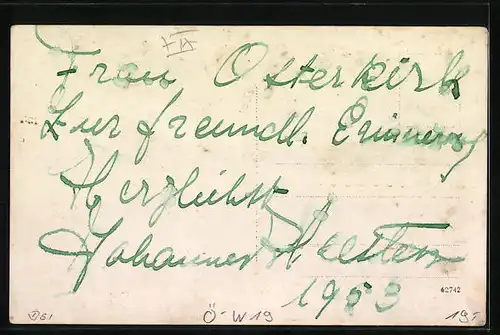 Frau Osterkirk
Zur freundl. Erinnerung
Herzlichst
Johannes Heesters
1953
62742
Ö-W19